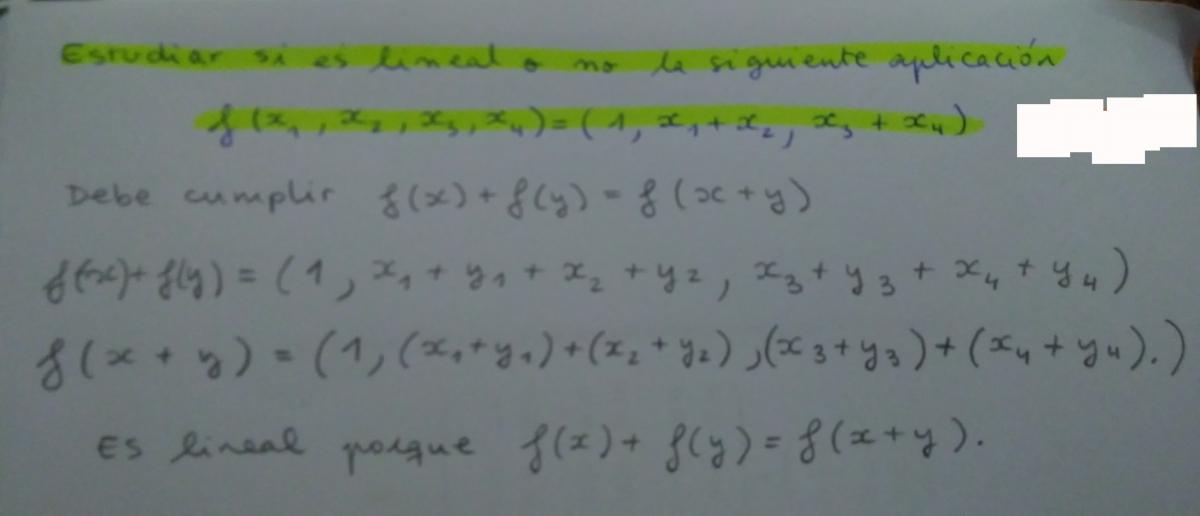 Estudiar si es lineal o no la siguiente aplicación
f(x₁, x₂, x₃, x₄) = (1, x₁ + x₂, x₃ + x₄)
Debe cumplir f(x) + f(y) = f(x + y)
f(x) + f(y) = (1, x₁ + y₁ + x₂ + y₂, x₃ + y₃ + x₄ + y₄)
f(x + y) = (1, (x₁ + y₁) + (x₂ + y₂), (x₃ + y₃) + (x₄ + y₄).)
Es lineal porque f(x) + f(y) = f(x + y).